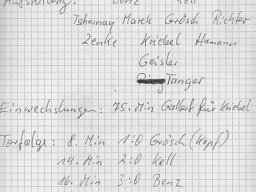 Aufstellung: Benz Kell
Tshernay Marek Grösch Richter
Zenke Kriebel Hamann
Geisler
Tanger
Einwechslungen: 75. Min Gallert für Kriebel
Torfolge: 8. Min 1:0 Grösch (Kopf)
14. Min 2:0 Kell
16. Min 3:0 Benz